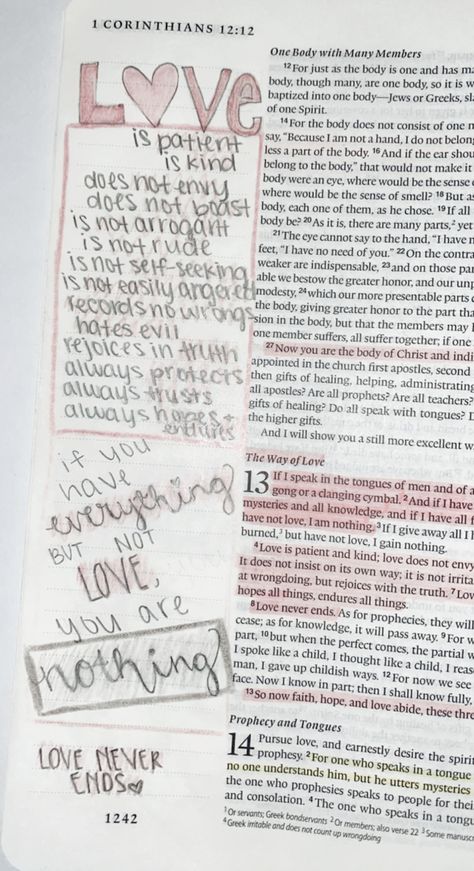 1 CORINTHIANS 12:12
LOVE
is patient
is kind
does not envy
does not boast
is not arrogant
is not rude
is not self-seeking
is not easily angered
records no wrongs
hates evil
rejoices in truth
always protects
always trusts
always hopes +
endures
if you
have
everything
BUT NOT
LOVE,
you are
nothing
LOVE NEVER
ENDS
1242
One Body with Many Members
12 For just as the body is one and has
body, though many, are one body, so it is
baptized into one body—Jews or Greeks,
of one Spirit.
14 For the body does not consist of one
say, “Because I am not a hand, I do not belong
less a part of the body. 16 And if the ear should
belong to the body,” that would not make it
body were an eye, where would be the sense
where would be the sense of smell? 18 But
body, each one of them, as he chose. 19 If all
body be? 20 As it is, there are many parts, yet
21 The eye cannot say to the hand, “I have
feet, “I have no need of you.” 22 On the
weaker are indispensable, 23 and on those
able we bestow the greater honor, and our
modesty, 24 which our more presentable parts
the body, giving greater honor to the part
sion in the body, but that the members may
one member suffers, all suffer together; if one
27 Now you are the body of Christ and
appointed in the church first apostles, second
then gifts of healing, helping, administrating
all apostles? Are all prophets? Are all teachers?
gifts of healing? Do all speak with tongues?
the higher gifts.
And I will show you a still more excellent
The Way of Love
13 If I speak in the tongues of men and of
gong or a clanging cymbal. 2 And if I have
mysteries and all knowledge, and if I have all
have not love, I am nothing. 3 If I give away all I
burned, but have not love, I gain nothing.
4 Love is patient and kind; love does not envy
It does not insist on its own way; it is not
at wrongdoing, but rejoices with the truth. 7
hopes all things, endures all things.
8 Love never ends. As for prophecies, they will
cease; as for knowledge, it will pass away. 9 For
part, 10 but when the perfect comes, the partial
I spoke like a child, I thought like a child, I
man, I gave up childish ways. 12 For now we see
face. Now I know in part; then I shall know fully,
13 So now faith, hope, and love abide, these
Prophecy and Tongues
14 Pursue love, and earnestly desire the
prophesy. 2 For one who speaks in a tongue
no one understands him, but he utters mysteries
the one who prophesies speaks to people for their
and consolation. 4 The one who speaks in a
1 Or servants; Greek bondservants 2 Or members; also verse 22 3 Some
4 Greek irritable and does not count up wrongdoing